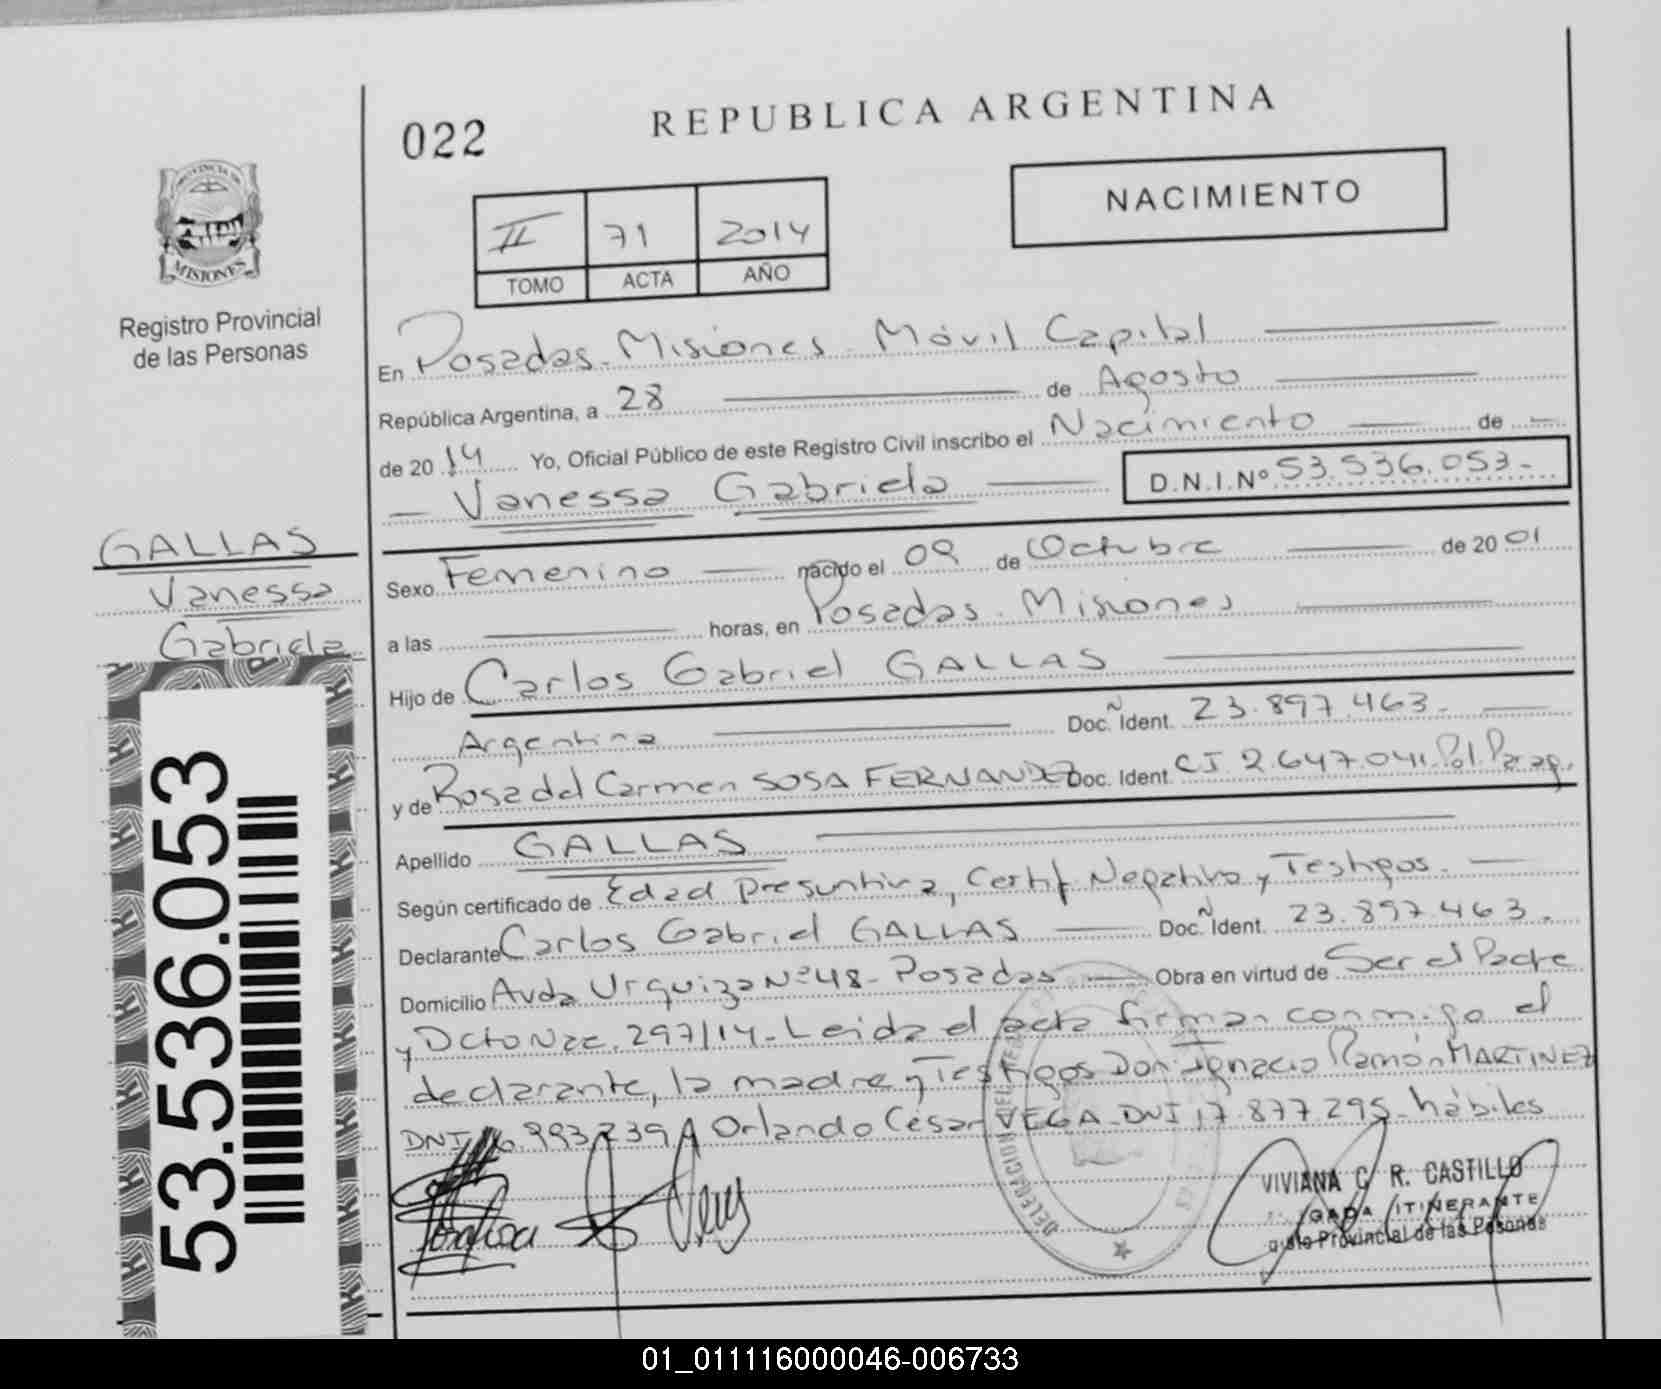 022
REPUBLICA ARGENTINA
NACIMIENTO
II 71 2014
TOMO ACTA AÑO
PROVINCIA DE
MISIONES
Registro Provincial
de las Personas
En Posadas - Misiones - Móvil Capital
República Argentina, a 28 de Agosto
de 2014 Yo, Oficial Público de este Registro Civil inscribo el Nacimiento de
Vanessa Gabriela D.N.I.Nº 53.536.053.-
GALLAS
Vanessa
Gabriela
Sexo Femenino nacido el 09 de Octubre de 2001
a las horas, en Posadas - Misiones
Hijo de Carlos Gabriel GALLAS
Argentina Doc. Ident. 23.897.463.
y de Rosa del Carmen SOSA FERNANDEZ Doc. Ident. CI 2.647.041. Pol. Parag.
Apellido GALLAS
Según certificado de Edad Presuntiva, Certif. Negativo y Testigos.
Declarante Carlos Gabriel GALLAS Doc. Ident. 23.897.463.
Domicilio Avda Urquiza Nº 48 - Posadas Obra en virtud de Ser el Padre
y Dcto Nac. 297/14 - Leida el acta firman conmigo el
declarante, la madre y Testigos Don Ignacio Ramón MARTINEZ
DNI Orlando César VEGA - DNI 17.877.295 - hábiles
53.536.053
DELEGACION
VIVIANA C. R. CASTILLO
ITINERANTE
Provincial de las Personas
01_011116000046-006733